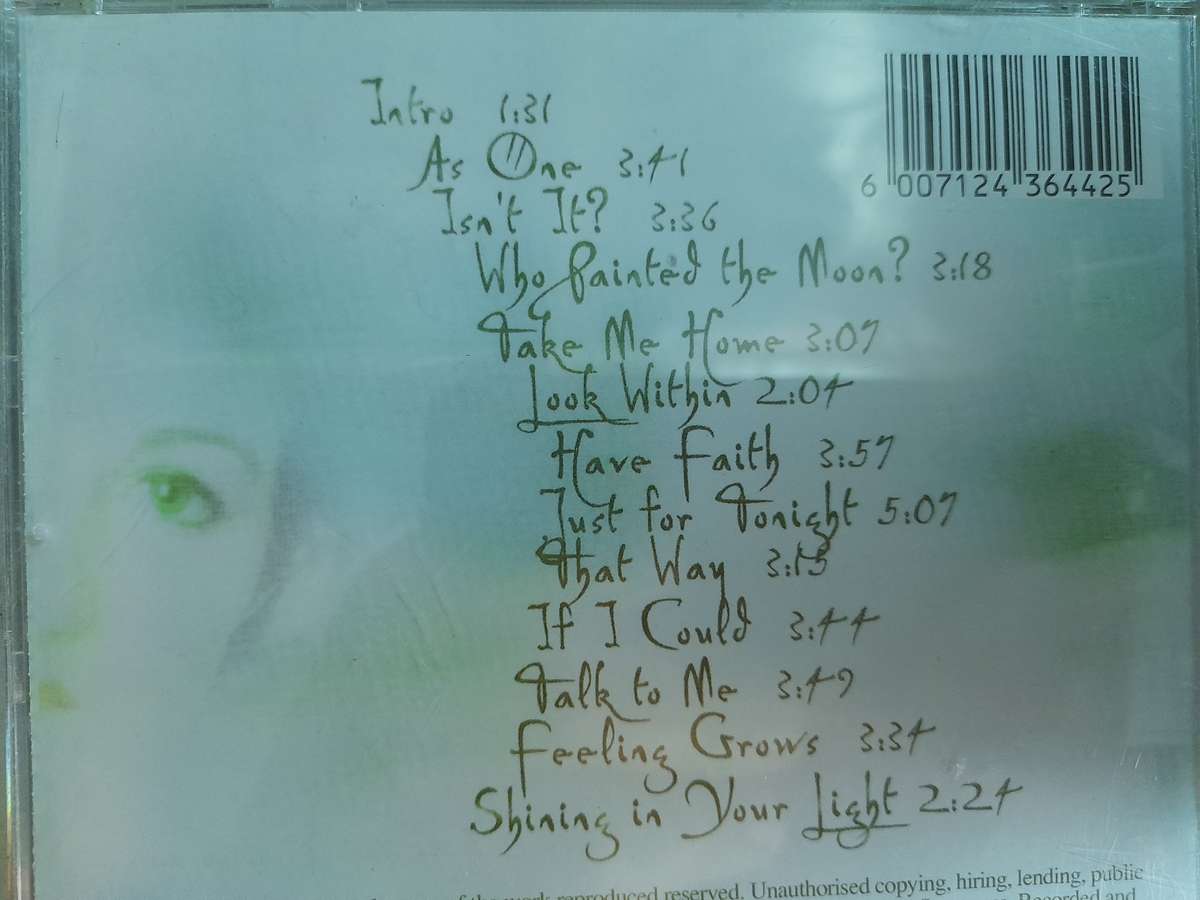 Intro 1:31
As One 3:41
Isn't It? 3:36
Who Painted the Moon? 3:18
Take Me Home 3:07
Look Within 2:04
Have Faith 3:57
Just for Tonight 5:07
That Way 3:15
If I Could 3:44
Talk to Me 3:49
Feeling Grows 3:34
Shining in Your Light 2:24
6 007124 364425
of the work reproduced reserved. Unauthorised copying, hiring, lending, public
Recorded and